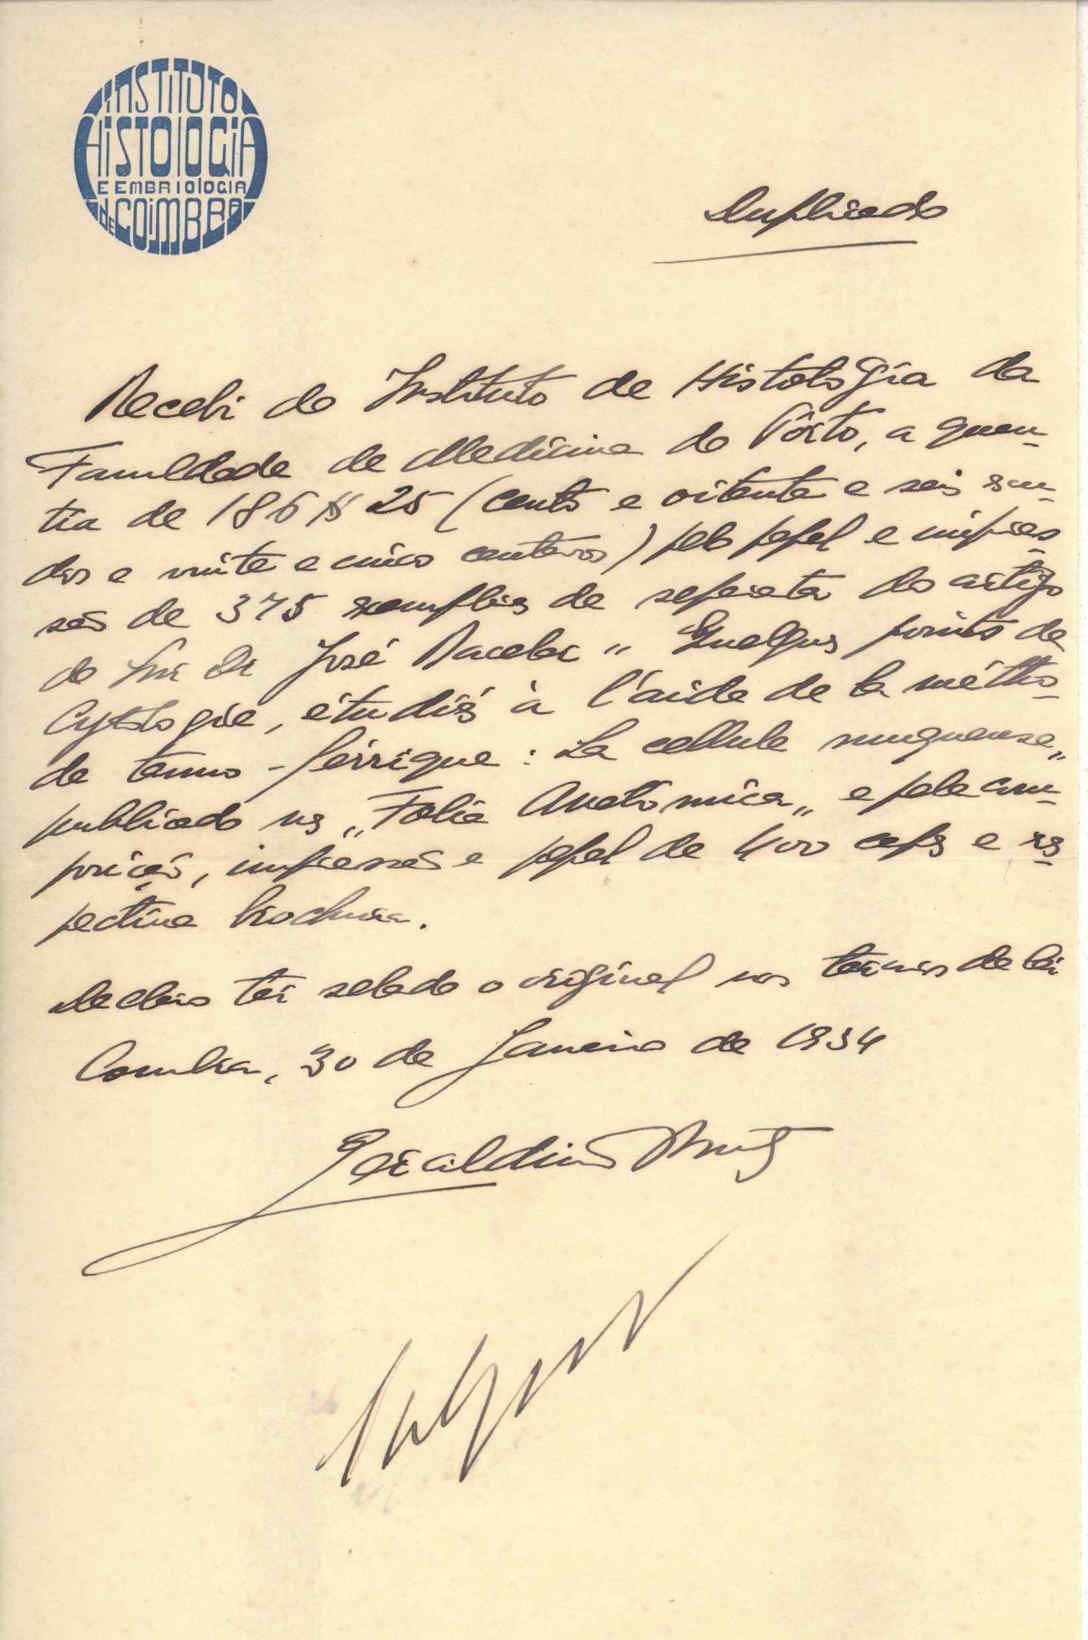 INSTITUTO
HISTOLOGIA
E EMBRIOLOGIA
DE COIMBRA
Duplicado
Recebi do Instituto de Histologia da
Faculdade de Medicina do Pôrto, a quan-
tia de 186$25 (cento e oitenta e seis escu-
dos e vinte e cinco centavos) pelo papel e impres-
são de 375 exemplares de separata do artigo
do Snr Dr José Bacelar „ Quelques points de
Cytologie, étudiés à l'aide de la métho-
de tanno-férrique : La cellule muqueuse„
publicado na „Folia Anatomica„ e pela com-
posição, impressão e papel de 400 capas e res-
pectiva brochura.
Declaro ter selado o original nos termos da lei
Coimbra, 30 de Janeiro de 1934
Geraldino